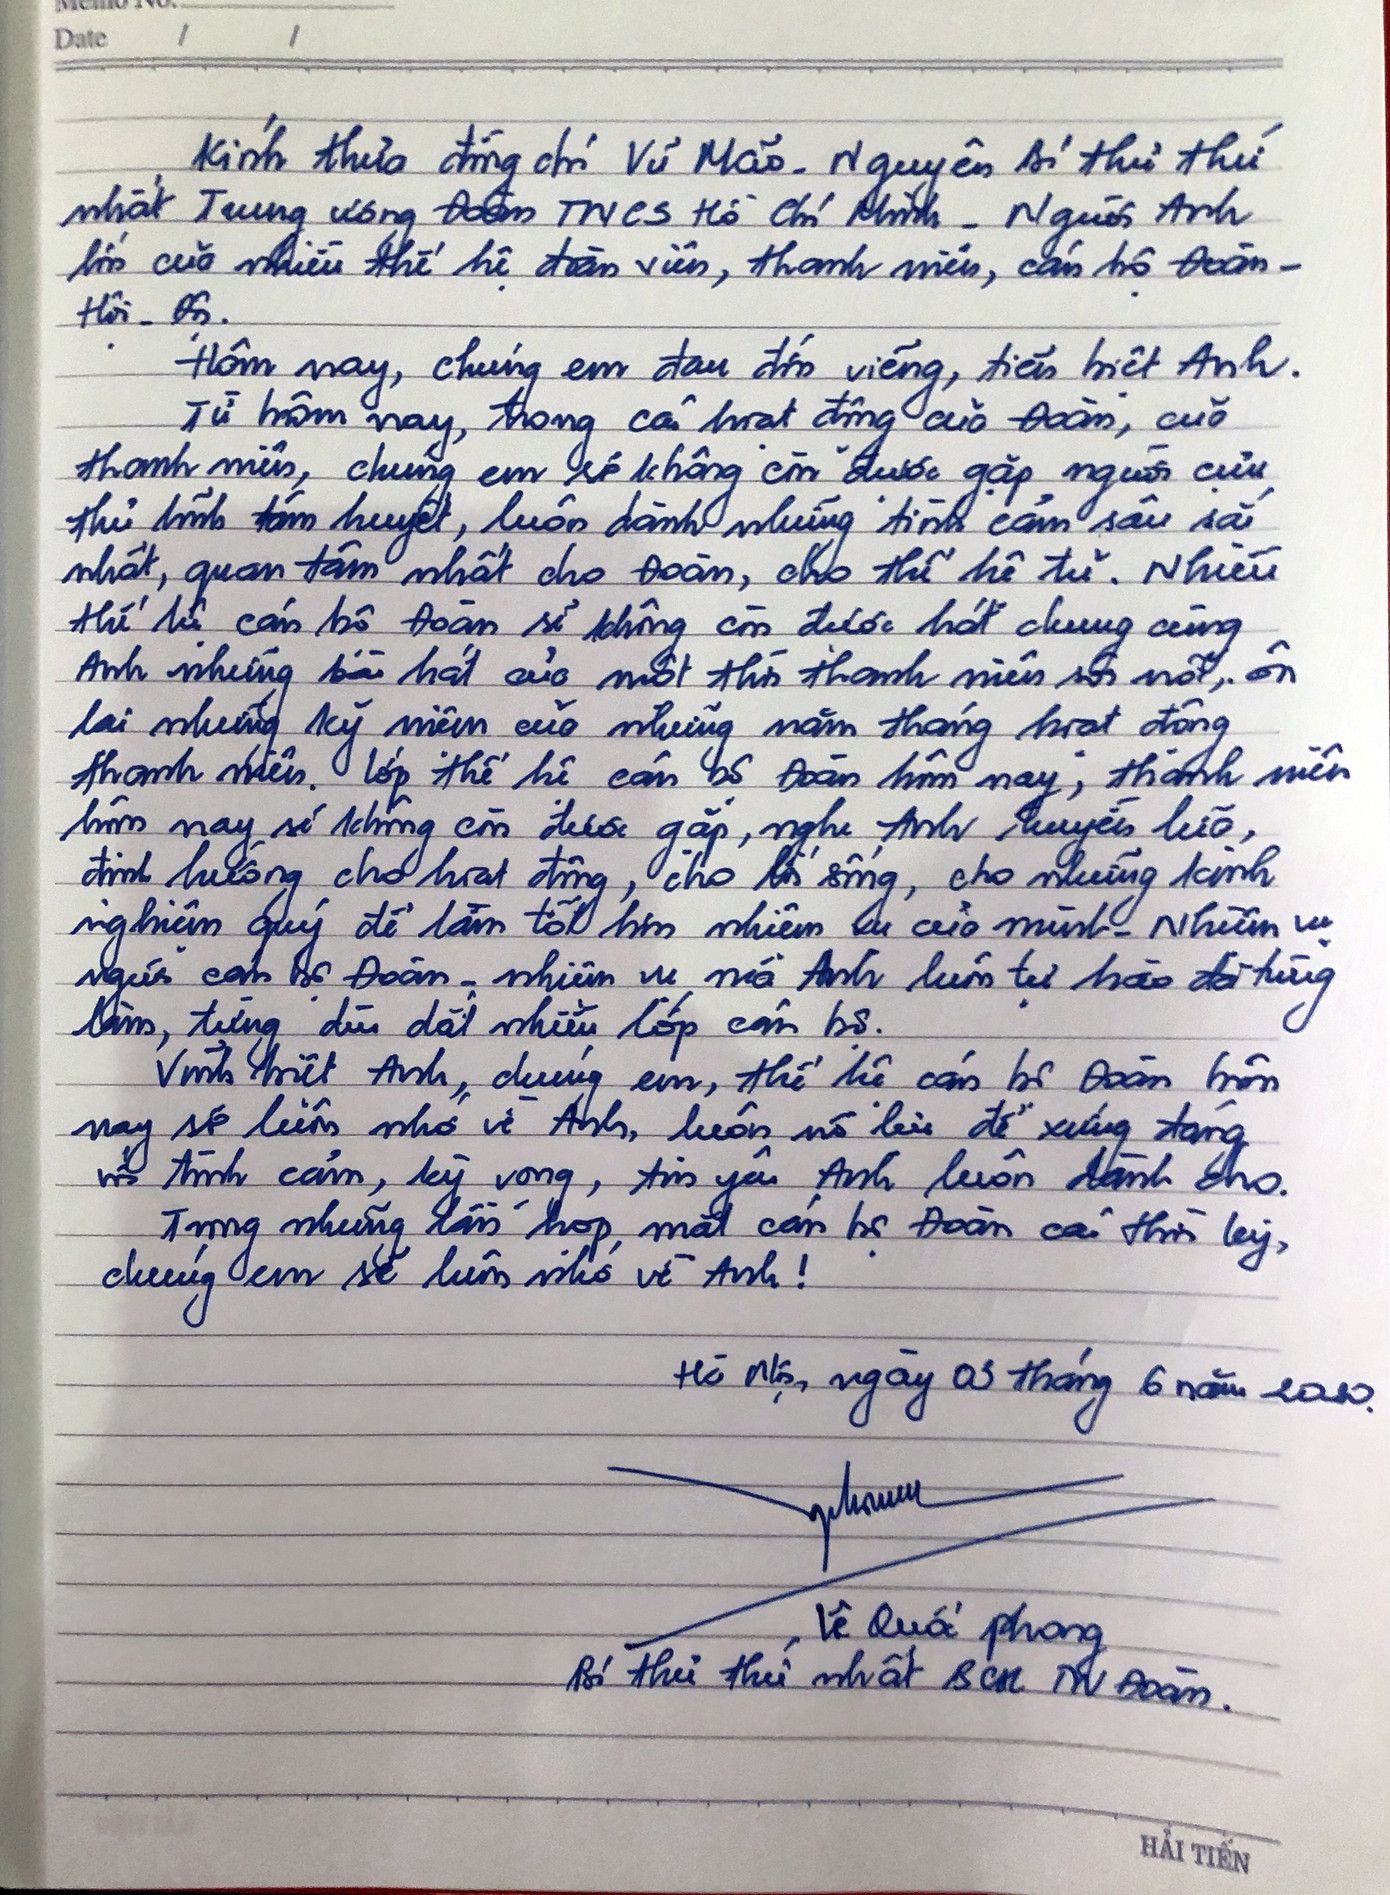 Memo No.
Date / /
Kính thưa đồng chí Vũ Mão - Nguyên Bí thư thứ
nhất Trung ương Đoàn TNCS Hồ Chí Minh - Người Anh
lớn của nhiều thế hệ đoàn viên, thanh niên, cán bộ Đoàn -
Hội - Đội.
Hôm nay, chúng em đau đớn viếng, tiễn biệt Anh.
Từ hôm nay, trong các hoạt động của Đoàn, của
thanh niên, chúng em sẽ không còn được gặp người cựu
thủ lĩnh tâm huyết, luôn dành những tình cảm sâu sắc
nhất, quan tâm nhất cho Đoàn, cho thế hệ trẻ. Nhiều
thế hệ cán bộ Đoàn sẽ không còn được hát chung cùng
Anh những bài hát của một thời thanh niên sôi nổi, ôn
lại những kỷ niệm của những năm tháng hoạt động
thanh niên. Lớp thế hệ cán bộ Đoàn hôm nay, thanh niên
hôm nay sẽ không còn được gặp, nghe Anh truyền lửa,
định hướng cho hoạt động, cho lối sống, cho những kinh
nghiệm quý để làm tốt hơn nhiệm vụ của mình - Nhiệm vụ
người cán bộ Đoàn - nhiệm vụ mà Anh luôn tự hào đã từng
làm, từng dìu dắt nhiều lớp cán bộ.
Vĩnh biệt Anh, chúng em, thế hệ cán bộ Đoàn hôm
nay sẽ luôn nhớ về Anh, luôn nỗ lực để xứng đáng
với tình cảm, kỳ vọng, tin yêu Anh luôn dành cho.
Trong những lần họp mặt cán bộ Đoàn các thời kỳ,
chúng em sẽ luôn nhớ về Anh!
Hà Nội, ngày 03 tháng 6 năm 2020.
Lê Quốc Phong
Bí thư thứ nhất BCH TW Đoàn.
HẢI TIẾN